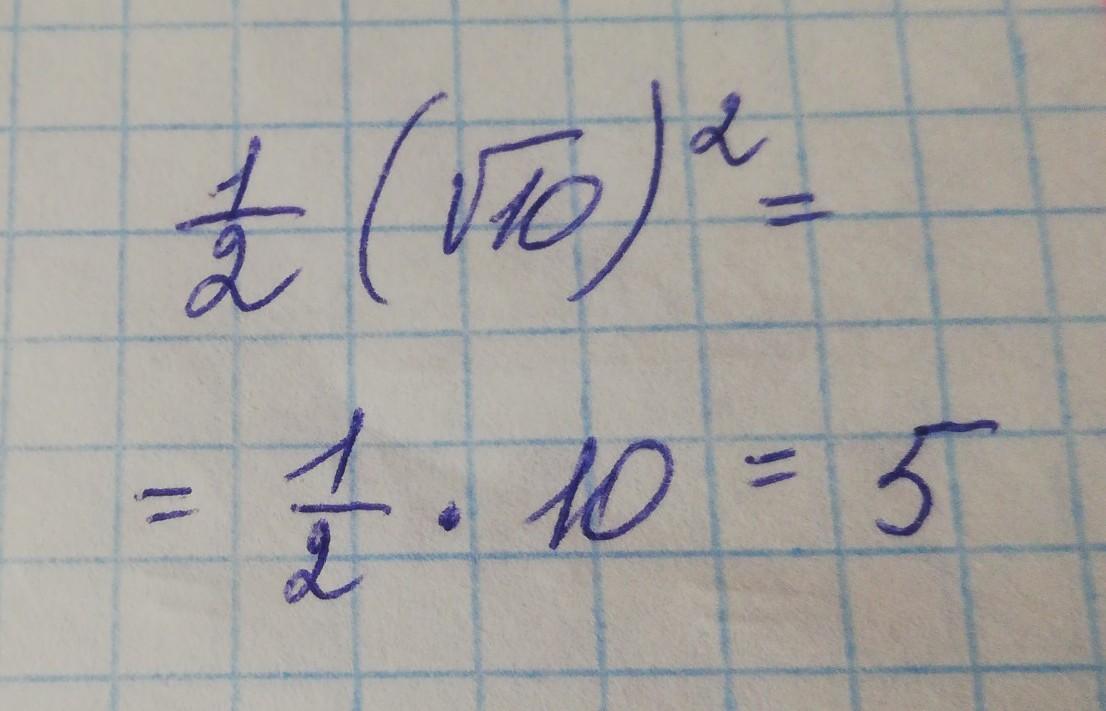 ½ (√10)² =
= ½ · 10 = 5